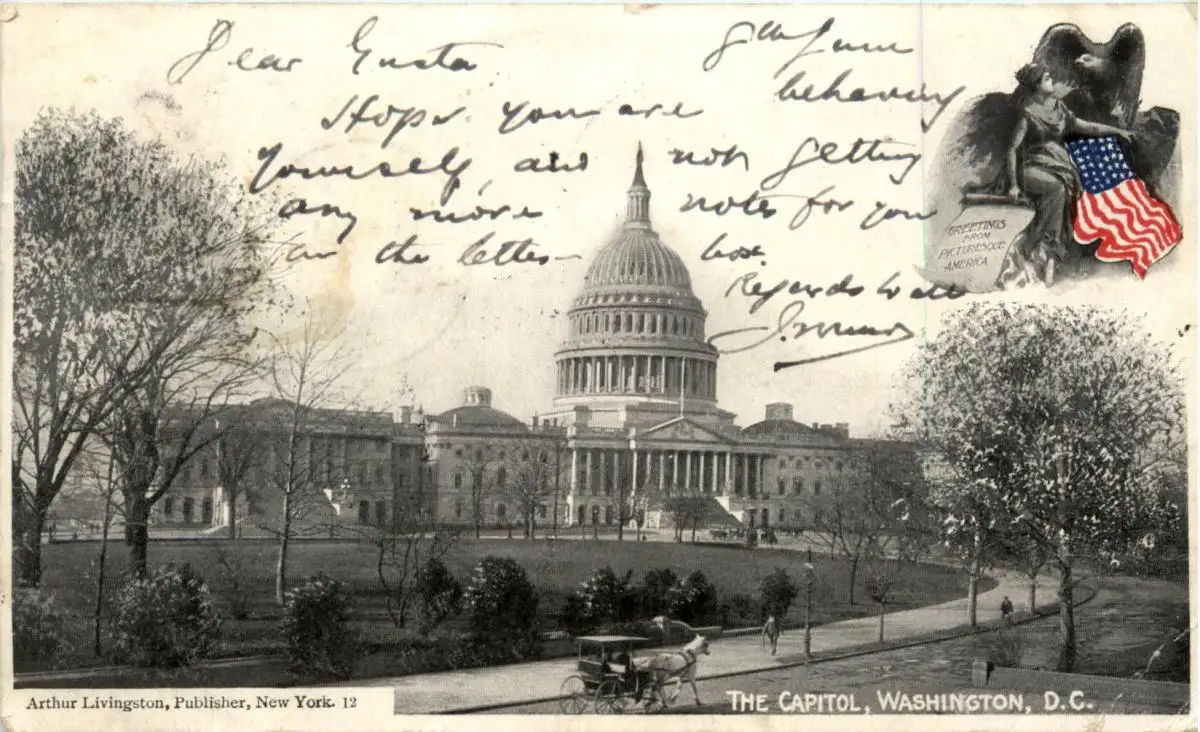 Dear Gusta
8th June
Hope you are behaving
yourself, and not getting
any more notes for you
in the letter box
Regards to all
GREETINGS
FROM
PICTURESQUE
AMERICA
Arthur Livingston, Publisher, New York. 12
THE CAPITOL, WASHINGTON, D.C.